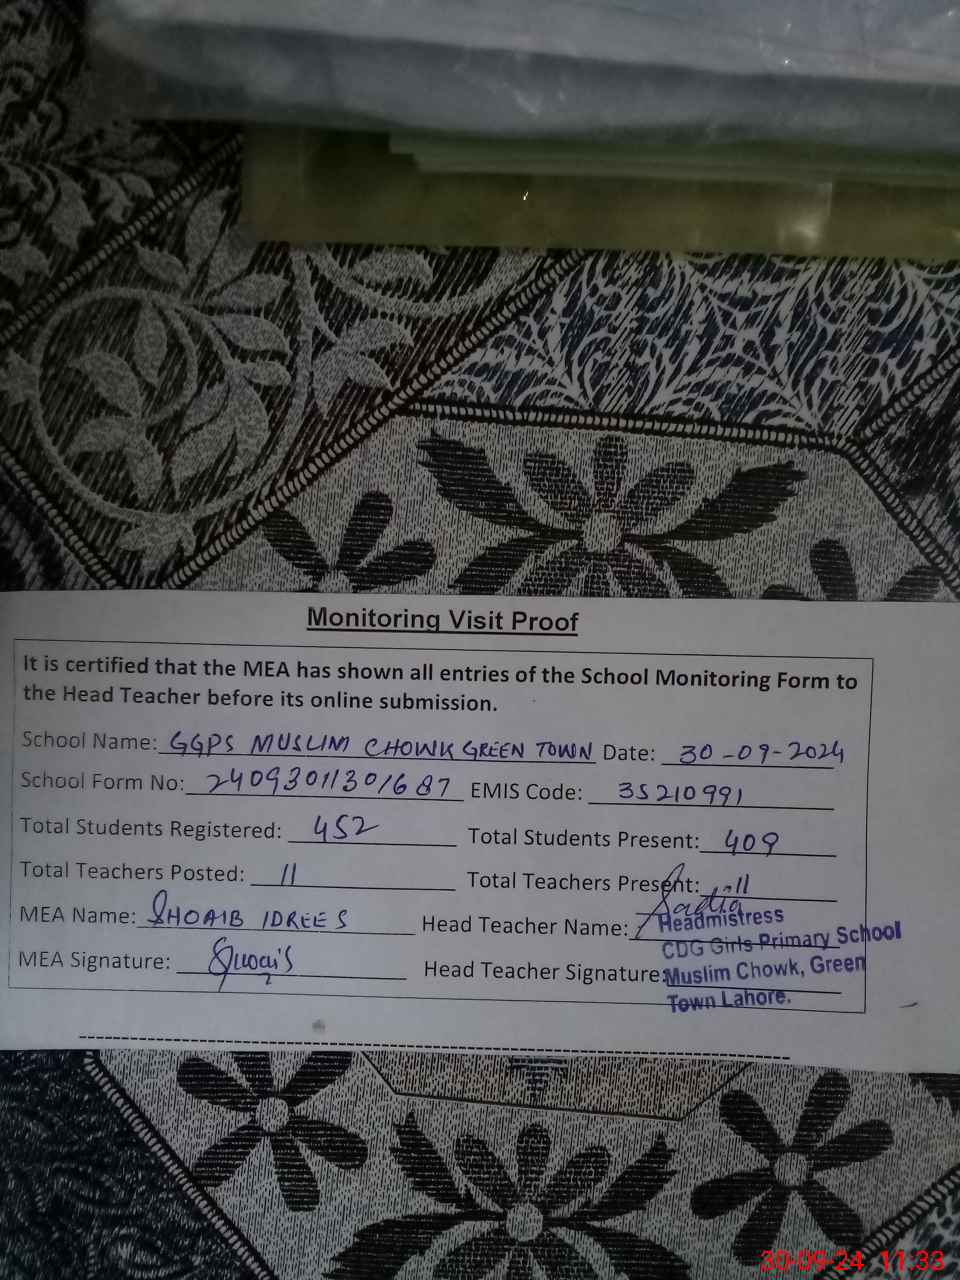 Monitoring Visit Proof
It is certified that the MEA has shown all entries of the School Monitoring Form to
the Head Teacher before its online submission.
School Name: GGPS MUSLIM CHOWK GREEN TOWN Date: 30-09-2024
School Form No: 24093011301687 EMIS Code: 35210991
Total Students Registered: 452 Total Students Present: 409
Total Teachers Posted: 11 Total Teachers Present: 11
MEA Name: SHOAIB IDREES Head Teacher Name: Sadia
Headmistress
CDG Girls Primary School
MEA Signature: Head Teacher Signature: Muslim Chowk, Green
Town Lahore.
30-09-24 11:33